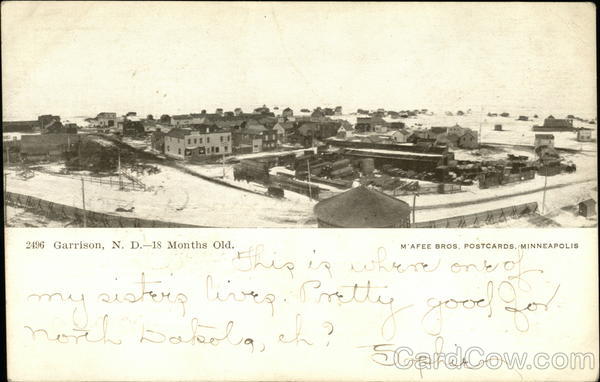 2496 Garrison, N. D.—18 Months Old.
M'AFEE BROS, POSTCARDS, MINNEAPOLIS
This is where one of
my sisters lives. Pretty good for
North Dakota, eh?
Sophie
CardCow.com